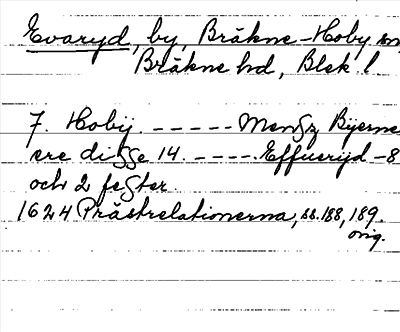 Evaryd, by, Bräkne-Hoby sn
Bräkne hd, Blek. l
7. Hobij. ----- Mengz Bijerne
ere disse 14. ----- Effueriyd - 8
och 2 fester.
1624 Prästrelationerna, ss. 188, 189.
orig.